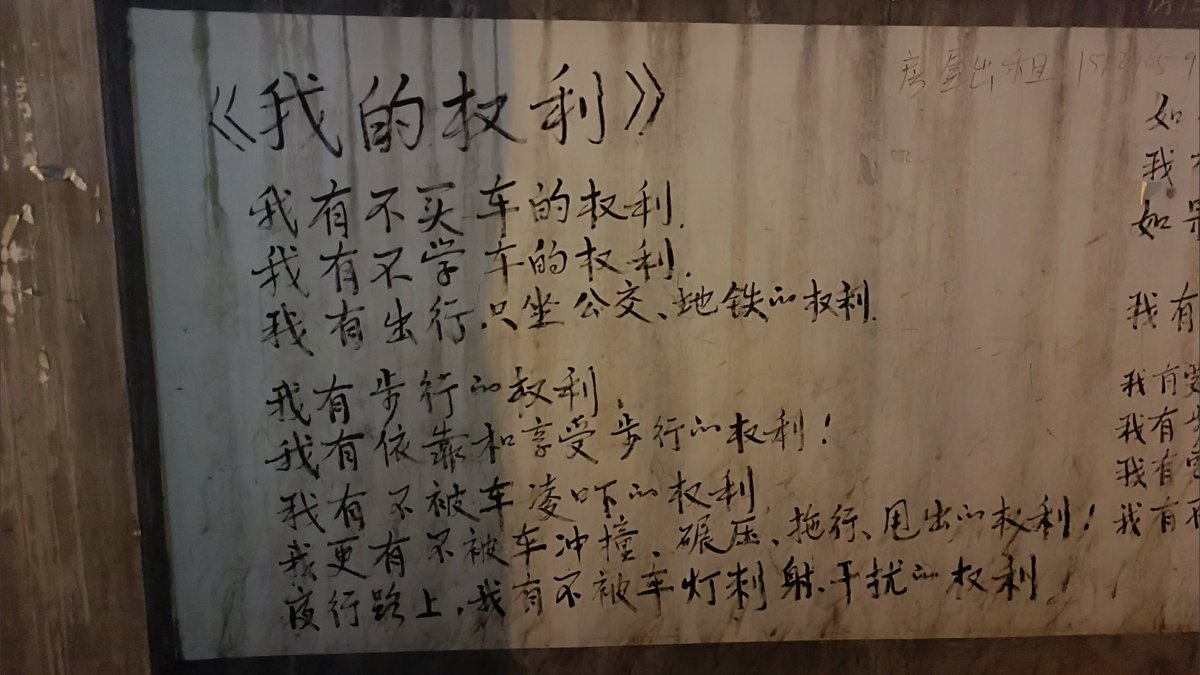 《我的权利》
我有不买车的权利.
我有不学车的权利.
我有出行只坐公交、地铁的权利.
我有步行的权利,
我有依靠和享受步行的权利!
我有不被车凌吓的权利.
我更有不被车冲撞、碾压、拖行、甩出的权利!
夜行路上,我有不被车灯刺射、干扰的权利.
房屋出租
如
我
如果
我有
我有
我有
我有
我有